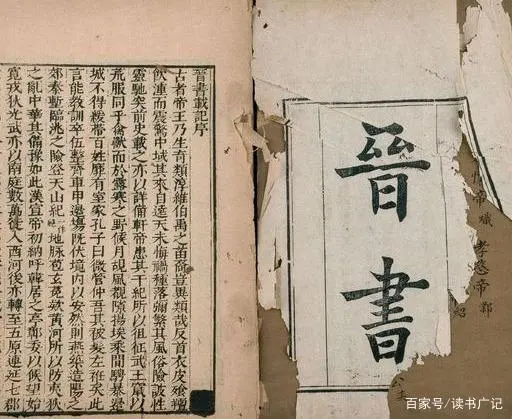 晉書載記序
古者帝王乃生奇類淳維伯禹之苗裔豈異類哉反首衣皮飡羶
飲湩而震驚中域其來自遠天未悔禍種落彌繁其風俗險詖性
靈馳突前史載之亦以詳備軒帝患其干紀所以徂征武王竄以
荒服同乎禽獸而於露寒之野候月覘風覩隙揚埃乘間騁暴邊
城不得緩帶百姓靡有室家孔子曰微管仲吾其被髮左衽矣此
言能教訓卒伍整齊車甲邊塲既伏境内以安然則燕築造陽之
郊秦塹臨洮之險登天山紀一作絕地脈苞玄菟款黃河所以防夷狄
之亂中華其備豫如此漢宣帝初納呼韓居之亭鄣委以候望始
寬戎狄光武亦以南庭數萬徙入西河後亦轉至五原連延七郡
晉書
帝熾 孝愍帝鄴
紹
百家号/读书广记